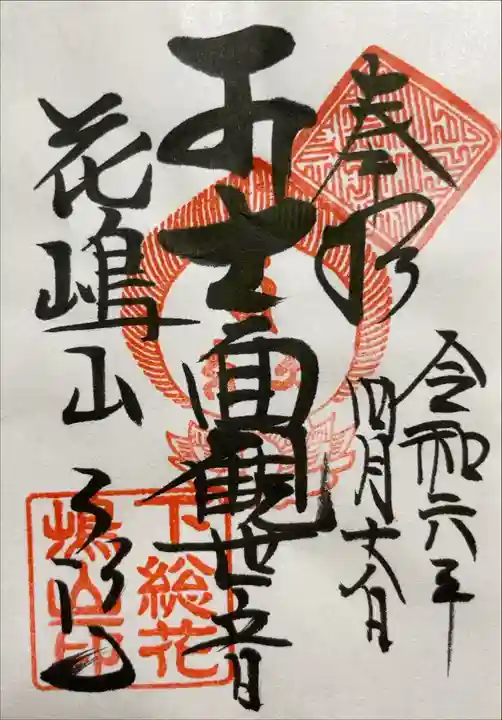 奉拝
令和六年
四月
十一面観世音
花嶋山
下総花
嶋山印